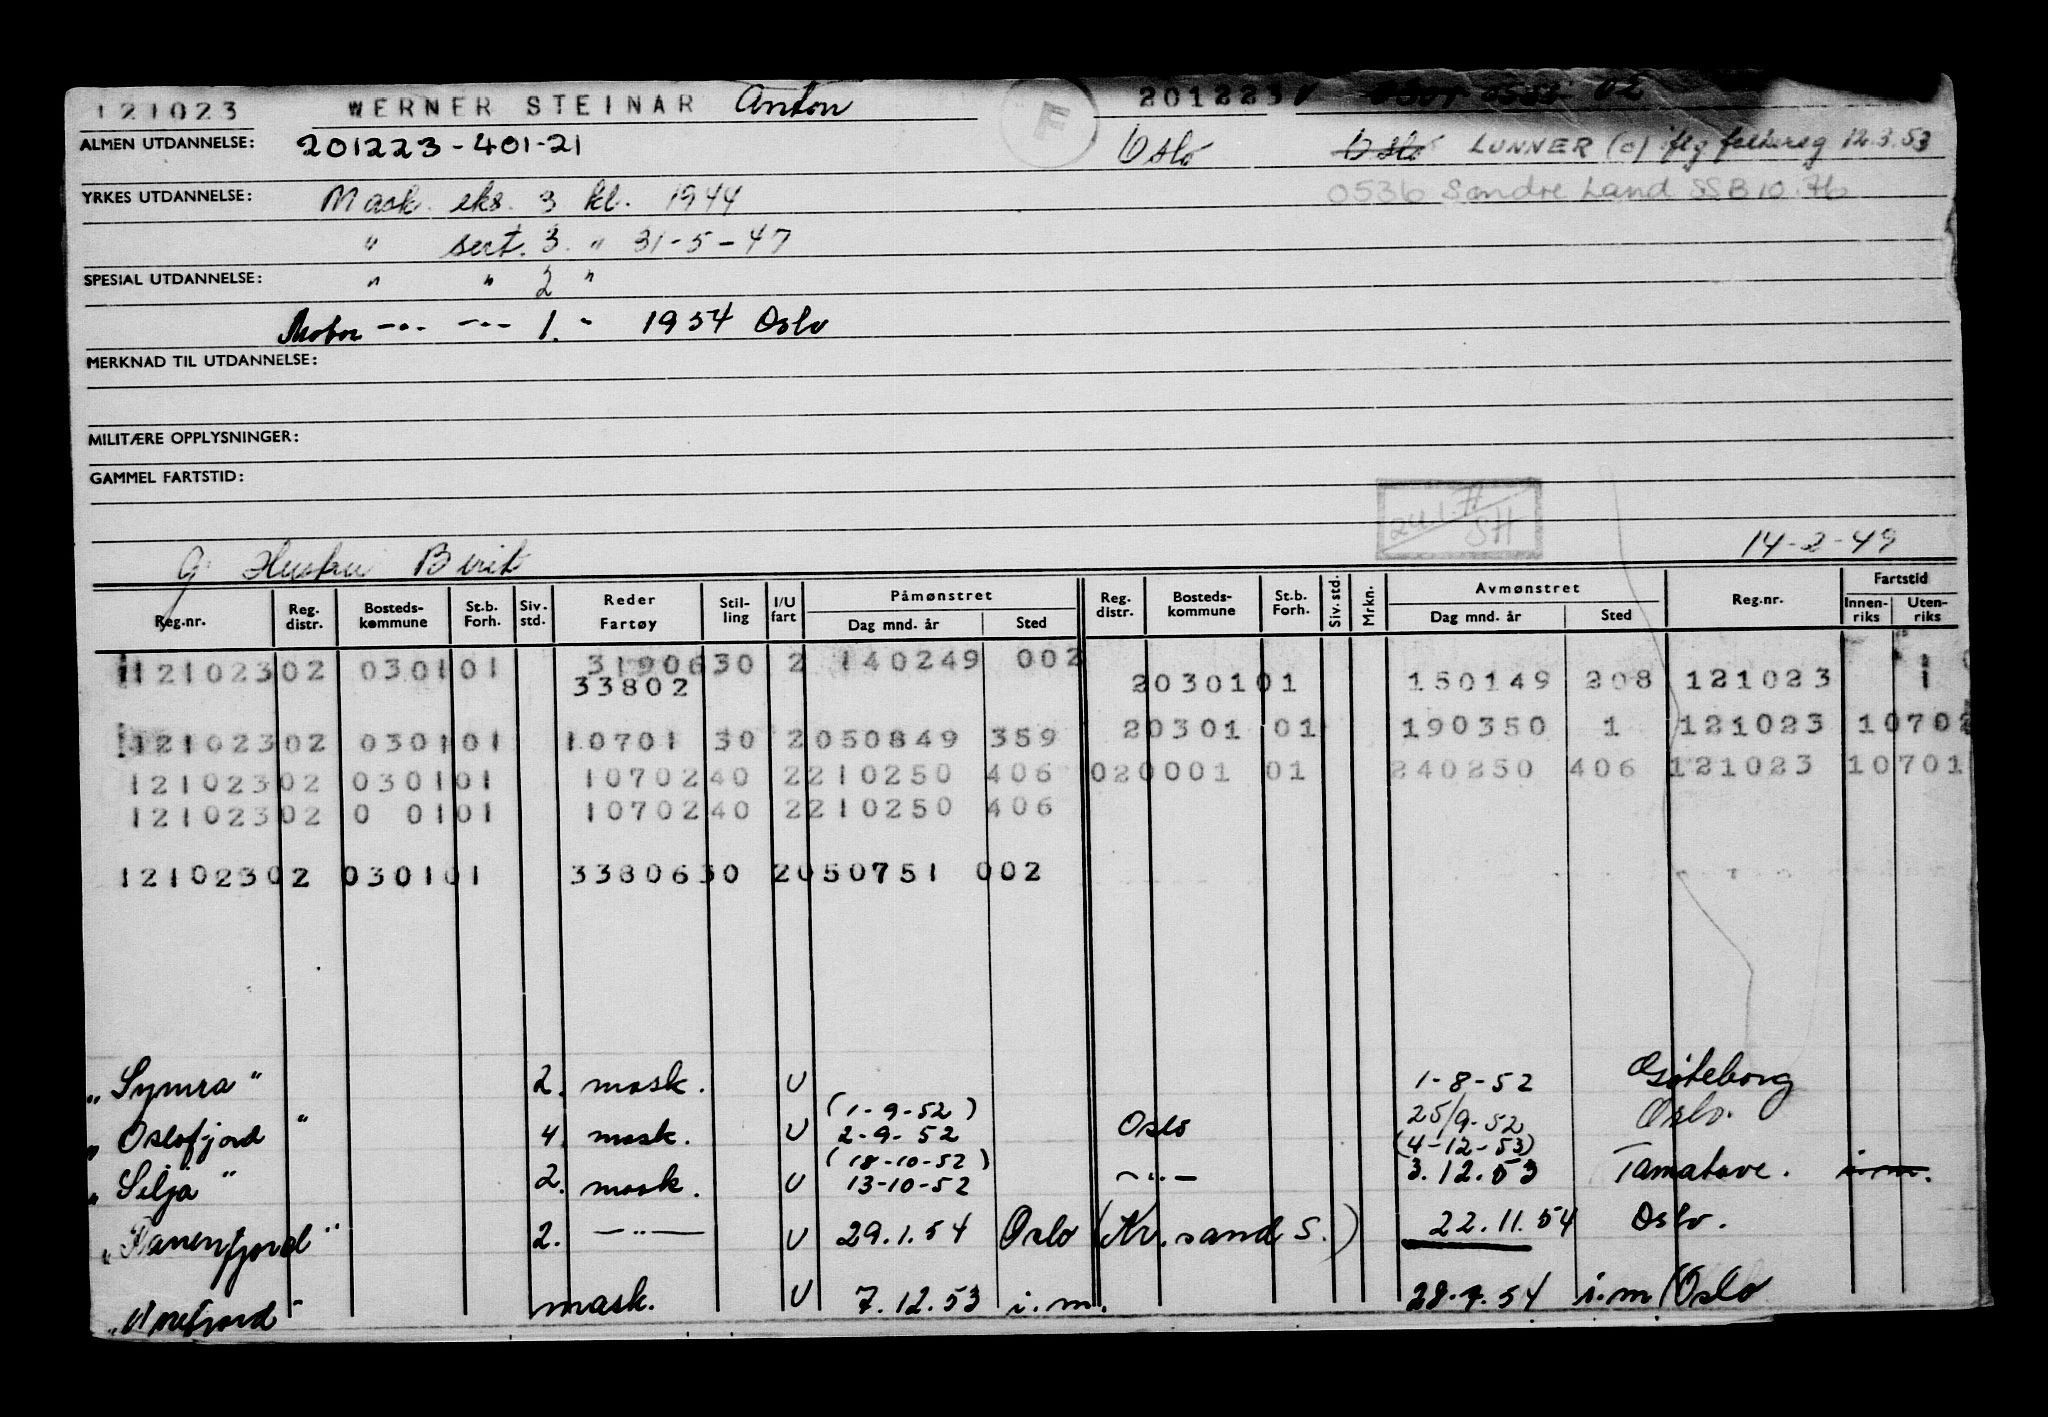 121023 WERNER STEINAR Anton 201223 02
ALMEN UTDANNELSE: 201223-401-21 F Oslo Oslo LUNNER (o) iflg folkereg 12.3.53
YRKES UTDANNELSE: Mask. eks. 3 kl. 1944 0536 Søndre Land SSB 10.76
" sert. 3. " 31-5-47
SPESIAL UTDANNELSE: " " 2 "
Motor -"- -"- 1. - 1954 Oslo
MERKNAD TIL UTDANNELSE:
MILITÆRE OPPLYSNINGER:
GAMMEL FARTSTID:
SH
g. Hustru Birit 14-2-49
Reg.nr. Reg. distr. Bosteds- kommune St.b. Forh. Siv. std. Reder Fartøy Stil- ling I/U fart Påmønstret Dag mnd. år Sted Reg. distr. Bosteds- kommune St.b. Forh. Siv. std. Mrkn. Avmønstret Dag mnd. år Sted Reg.nr. Fartstid Innen- riks Uten- riks
12102302 030101 3190630 2 140249 002
33802 20301 01 150149 208 121023 1
12102302 030101 10701 30 2050849 359 20301 01 190350 1 121023 10702
12102302 030101 1070240 2210250 406 020001 01 240250 406 121023 10701
12102302 0 0101 1070240 2210250 406
12102302 030101 3380630 2050751 002
"Symra" 2. mask. U 1-8-52 Gøteborg
(1-9-52)
"Oslofjord" 4. mask. U 2-9-52 Oslo 25/9-52 Oslo.
(18-10-52) (4-12-53)
"Silja" 2. mask. U 13-10-52 -"- 3.12.53 Tamatave. i.m.
"Ranenfjord" 2. -"- U 29.1.54 Oslo (Kr.sand S.) 22.11.54 Oslo.
mask. U 7.12.53 i.m. i.m/Oslo